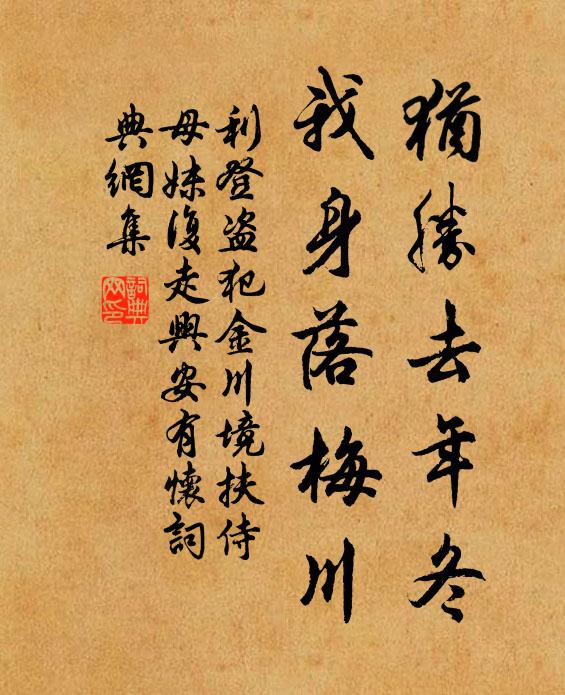 猶勝去年冬
我身落梅川
利登盗犯金川境扶侍
母妹復走興安有懷詞
典網集
詞典網印